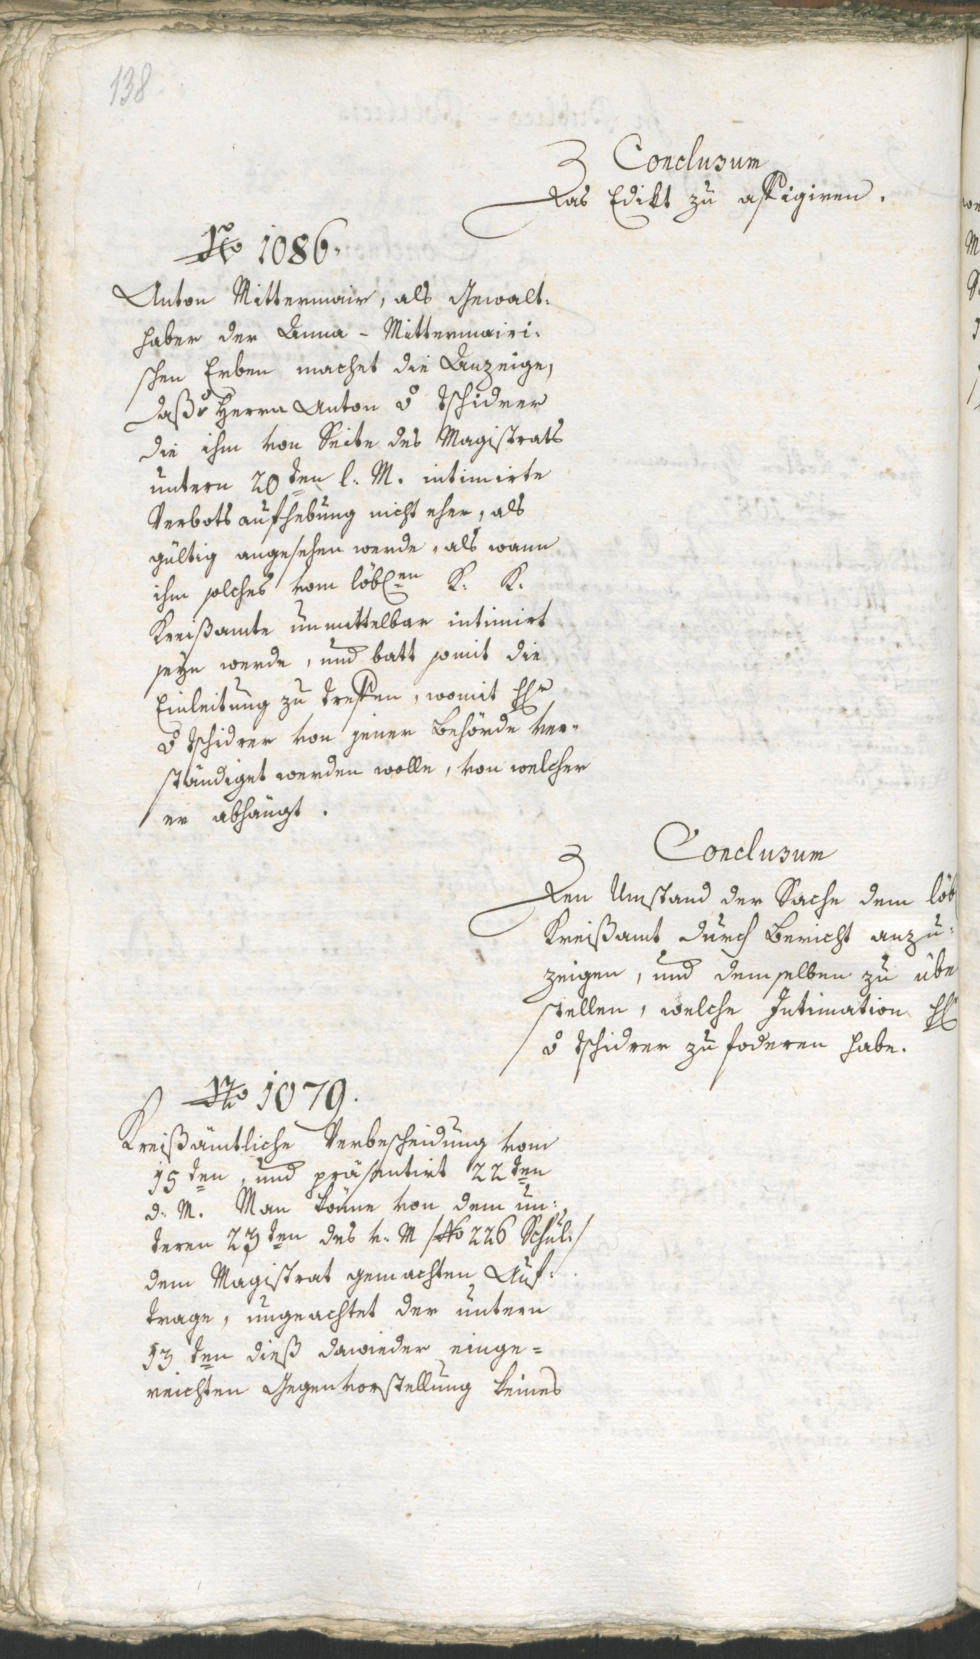 138
Conclusum
Das Edikt zu affigiren.
No 1086.
Anton Mittermair, als Gewalt-
haber der Anna - Mittermairi-
schen Erben machet die Anzeige,
daß Herrn Anton v Tschidrer
die ihm von Seite des Magistrats
untern 20ten l. M. intimirte
Verbotsaufhebung nicht eher, als
gültig angesehen werde, als wann
ihm solches vom löblen K. K.
Kreißamte unmittelbar intimirt
seyn werde, und batt somit die
Einleitung zu treffen, womit Hr
v Tschidrer von jener Behörde ver-
ständiget werden wolle, von welcher
er abhängt.
Conclusum
Den Umstand der Sache dem löbl
Kreißamt durch Bericht anzu-
zeigen, und demselben zu übe
stellen, welche Intimation H
v Tschidrer zu foderen habe.
No 1079.
Kreißämtliche Verbescheidung vom
15ten, und präsentirt 22ten
d. M. Man könne von dem un-
deren 23ten des v. M /No 226 Schul:/
dem Magistrat gemachten Auf-
trage, ungeachtet der untern
13ten dieß dawieder einge-
reichten Gegenvorstellung keines